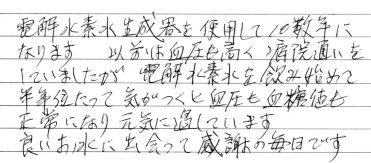 電解水素水生成器を使用して10数年に
なります 以前は血圧も高く 病院通いを
していましたが 電解水素水を飲み始めて
半年位たって気がつくと血圧も血糖値も
正常になり元気に過しています
良いお水に出会って感謝の毎日です